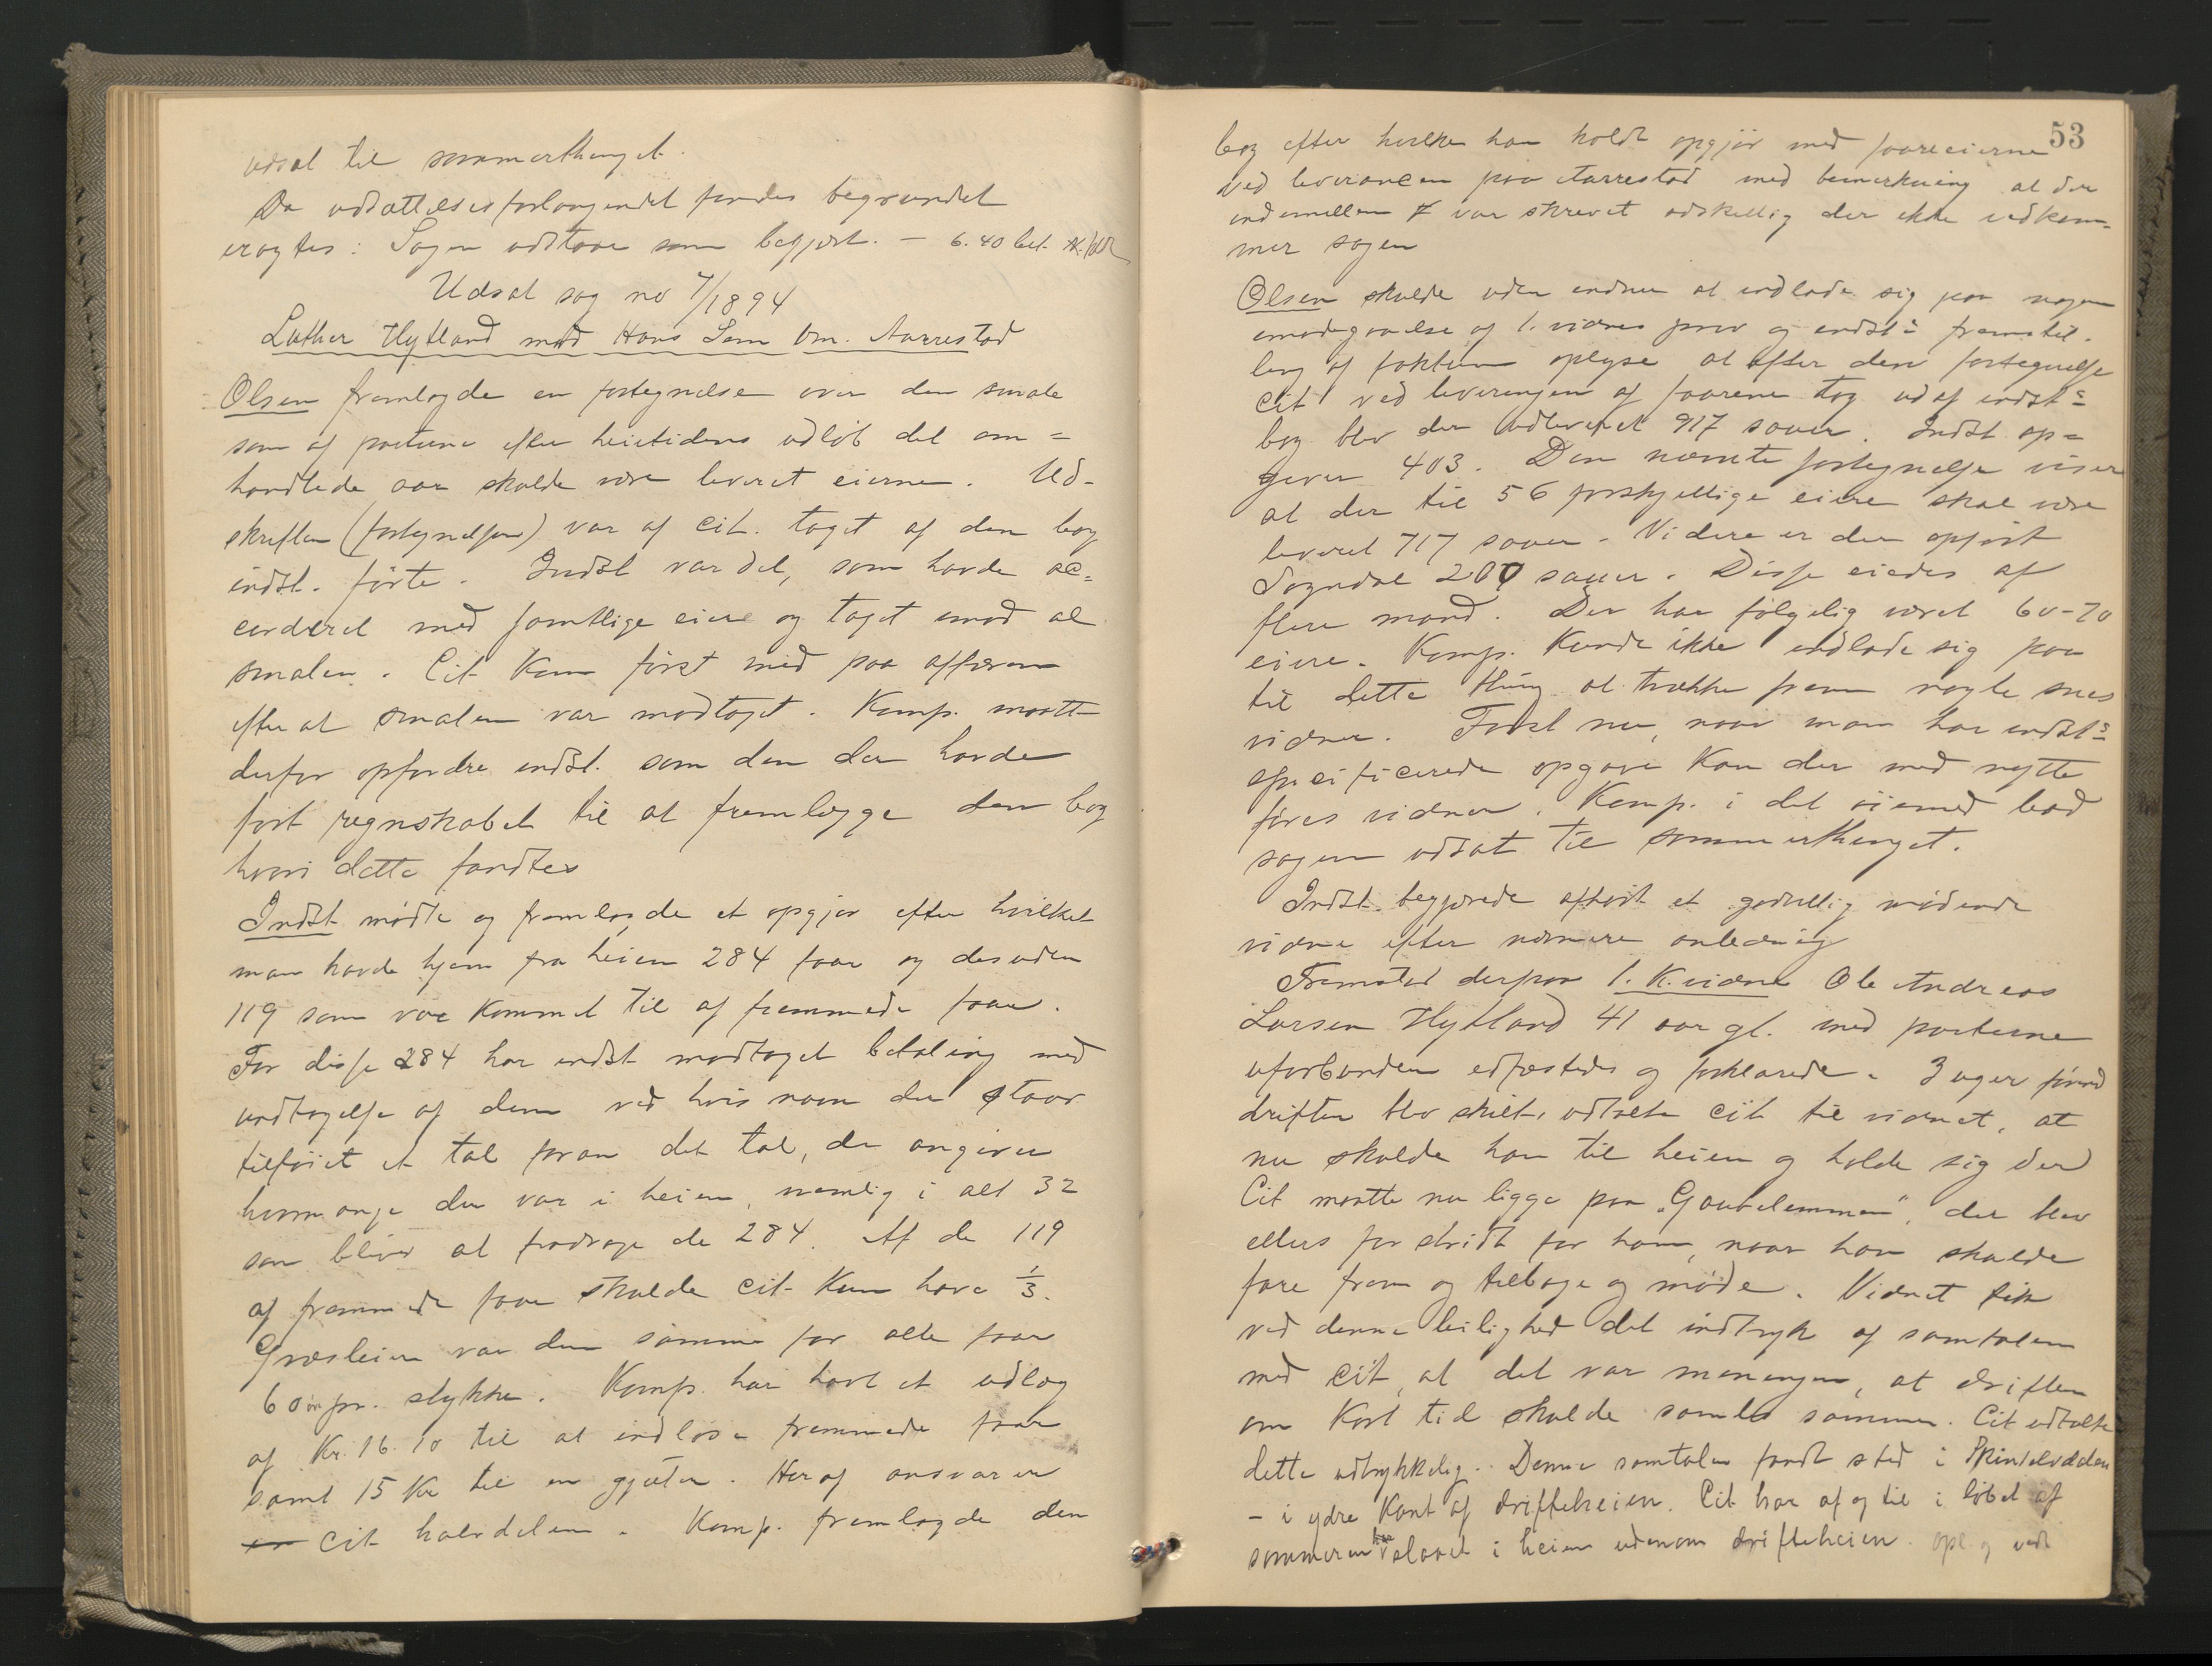 udsat til sommerthinget.
Da udsættelsesforlangendet fandtes begrundet
eragtes: Sagen udstaar som begjært. — 6.40 bet.
Udsat sag no 7/1894
Luther Hytland mod Hans Sem Om. Aarrestad
Olsen fremlagde en fortegnelse over den smale
som af parterne efter heietidens udløb det om=
handlede aar skulde være leveret eierne. Ud-
skriften (fortegnelsen) var af cit. taget af den bog
indst. førte. Indst var det, som havde ac=
corderet med samtlige eiere og taget imod al
smalen. Cit kom først med paa affæren
efter at smalen var modtaget. Komp. maatte
derfor opfordre indst. som den der havde
ført regnskabet til at fremlægge den bog
hvori dette fandtes
Indst mødte og fremlagde et opgjør efter hvilket
man havde hjem fra heien 284 faar og desuden
119 som var kommet til af fremmede faar.
For disse 284 har indst modtaget betaling med
undtagelse af dem ved hvis navn der staar
tilføiet et tal foran det tal, der angiver
hvormange der var i heien, nemlig i alt 32
som bliver at fradrage de 284. Af de 119
af fremmede faar skulde cit kun have 1/3.
Græsleien var den samme for alle faar
60 øre pr. stykke. Komp. har havt et udlæg
af Kr. 16.10 til at indløse fremmede faar
samt 15 Kr til en gjæter. Heraf ansvarer
cit halvdelen. Komp. fremlagde den
53
bog efter hvilken han holdt opgjør med faareeierne
ved leverancen paa Aarrestad med bemerkning at der
indimellem var skrevet adskillig der ikke vedkom-
mer sagen
Olsen skulde uden endnu at indlade sig paa nogen
imødegaaelse af 1. vidnes prov og indst's fremstil-
ling af faktum oplyse at efter den fortegnelse
cit ved leveringen af faarene tog ud af indst's
bog blev der udleveret 917 sauer. Indst op=
giver 403. Den nævnte fortegnelse viser
at der til 56 forskjellige eiere skal være
leveret 717 sauer. Videre er der opført
Sogndal 200 sauer. Disse eiedes af
flere mand. Der har følgelig været 60-70
eiere. Komp. kunde ikke indlade sig paa
til dette thing at trække frem nogle snes
vidner. Først nu, naar man har indst's
specificerede opgave kan der med nytte
føres vidner. Komp. i det øiemed bad
sagen udsat til sommerthinget.
Indst. begjærede afhørt et godvillig mødende
vidne efter nærmere anledning
Fremstod derpaa 1. K. vidne Ole Andreas
Larsen Hytland 41 aar gl. med parterne
uforbunden edfæstedes og forklarede. 3 uger førend
driften blev skilt, udtalte cit til vidnet, at
nu skulde han til heien og holde sig der
Cit maatte nu ligge paa „Goutelemmen", der blev
ellers for stridt for ham, naar han skulde
fare frem og tilbage og møde. Vidnet fik
ved denne leilighed det indtryk af samtalen
med cit, at det var meningen, at driften
om kort tid skulde samles sammen. Cit udtalte
dette udtrykkelig. Denne samtalen fandt sted i
- i ydre kant af drifteheien. Cit har af og til i løbet af
sommeren han slaaet i heien udenom drifteheien. opl. og vedt